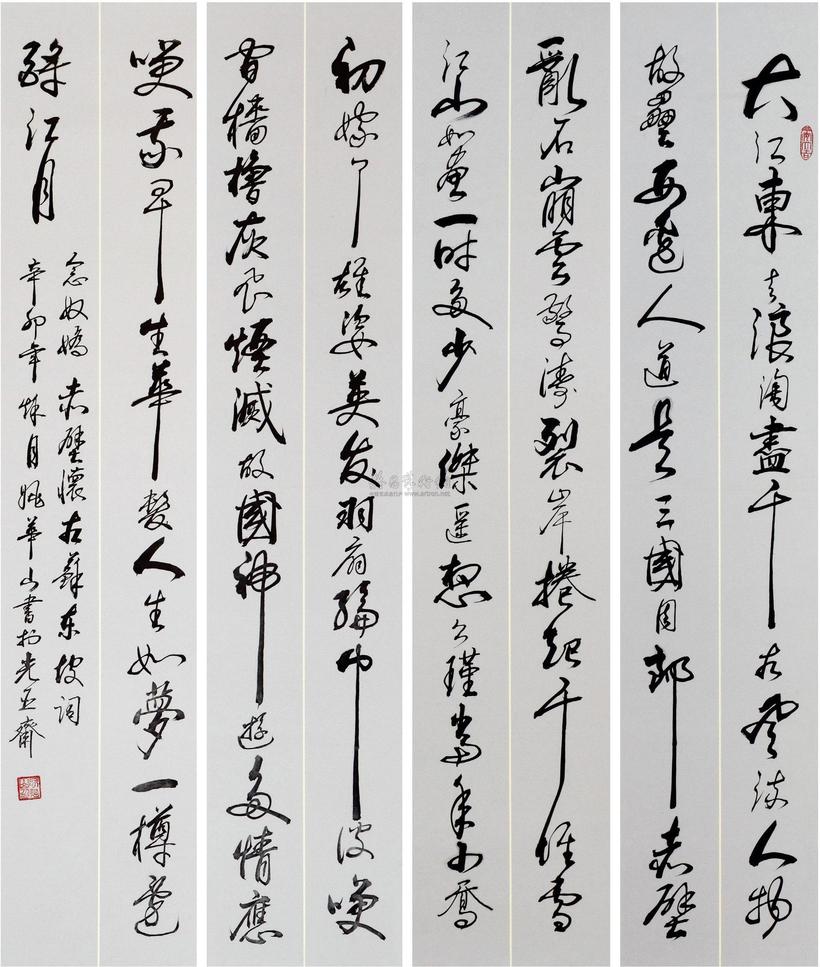 大江東去浪淘盡千古風流人物
故壘西邊人道是三國周郎赤壁
亂石崩雲驚濤裂岸捲起千堆雪
江山如畫一時多少豪傑遥想公瑾當年小喬
初嫁了雄姿英发羽扇綸巾談笑
間檣櫓灰飛煙滅故國神遊多情應
笑我早生華髮人生如夢一樽還
酹江月
念奴嬌赤壁懷古蘇東坡詞
辛卯年秋月姚華山書於齋
www.artron.net